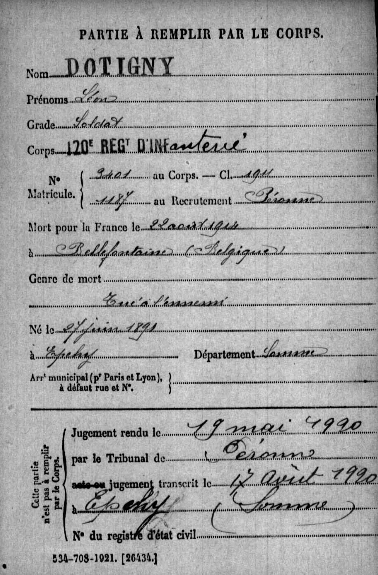 PARTIE À REMPLIR PAR LE CORPS.
Nom DOTIGNY
Prénoms Léon
Grade Soldat
Corps 120E REGT D'INFanterie
N° Matricule. { 3401 au Corps. — Cl. 1911
1187 au Recrutement Péronne
Mort pour la France le 22 août 1914
à Bellefontaine (Belgique)
Genre de mort
Tué à l'ennemi
Né le 27 juin 1891
à Epehy Département Somme
Arrt municipal (pr Paris et Lyon), à défaut rue et N°. }
Cette partie n'est pas à remplir par le Corps.
Jugement rendu le 19 mai 1920
par le Tribunal de Péronne
acte ou jugement transcrit le 17 Août 1920
à Epehy (Somme)
N° du registre d'état civil
534-708-1921. [26434.]